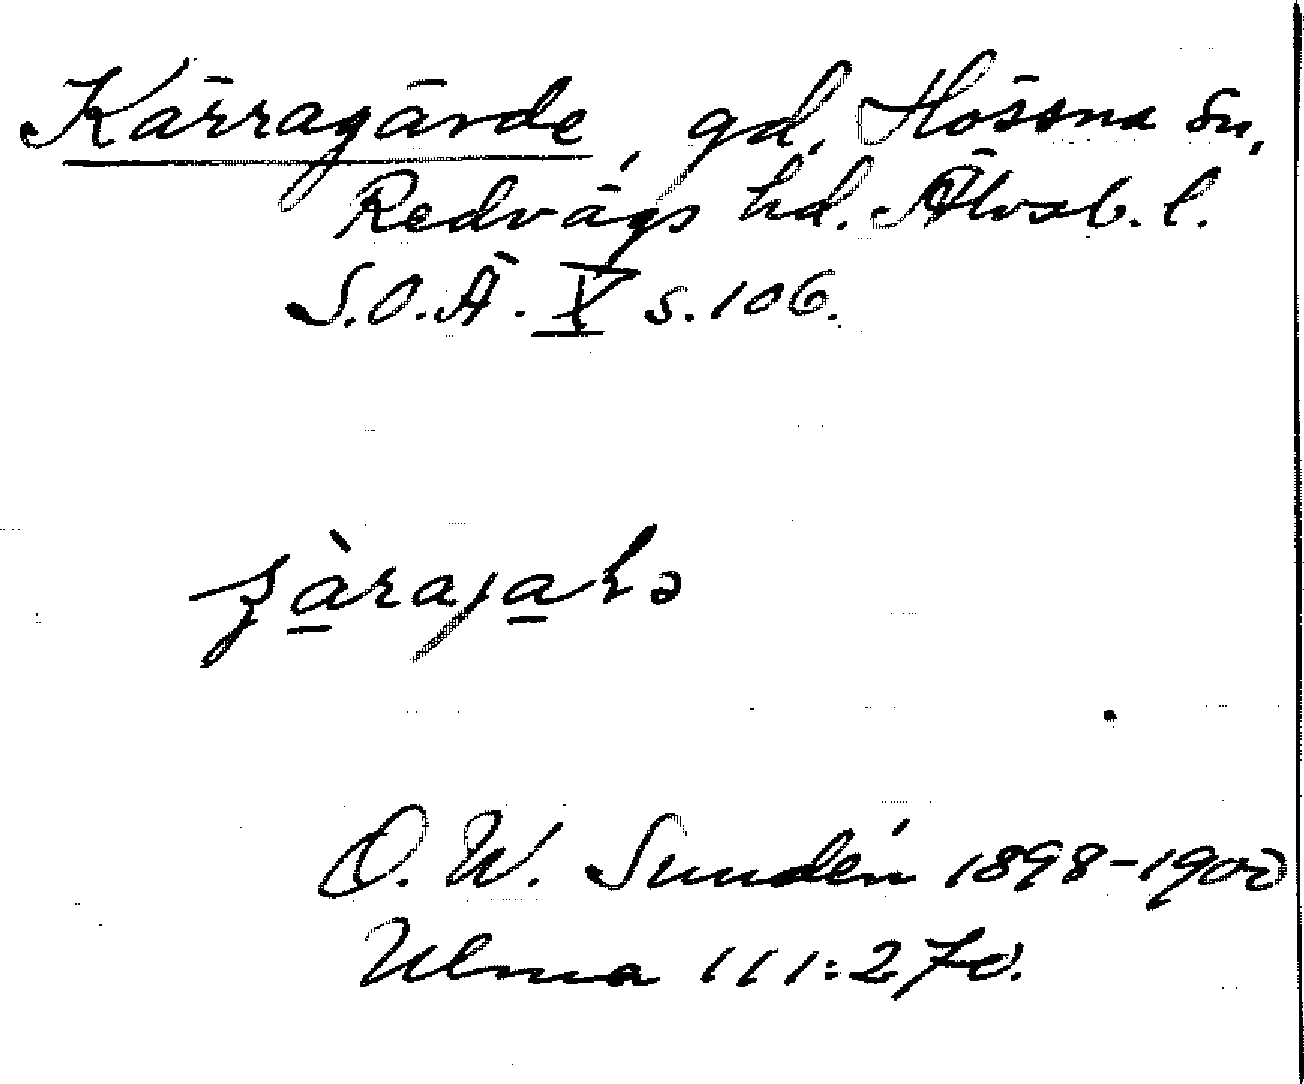 Kärragärde, gd, Hössna sn,
Redvägs hd. Älvsb. l.
S.O.Ä. X s. 106.
O. W. Sundén 1898-1900
Ulma 111:270.